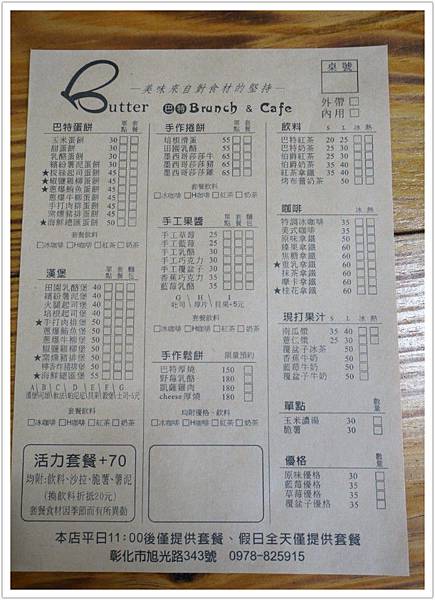 Butter
—美味來自對食材的堅持—
巴特Brunch & Cafe
桌號
外帶
內用
巴特蛋餅 單點 套餐
玉米蛋餅 30
甜蛋餅 30
乳酪蛋餅 30
繽紛薯泥蛋餅 30
45
椒鹽雞柳蛋餅 45
★蔥爆鮪魚蛋餅 45
蔥爆牛柳蛋餅 45
手打肉排蛋餅 45
窯燻豬排蛋餅 45
★海鮮總匯蛋餅 45
套餐飲料
□冰咖啡 □H咖啡 □紅茶 □奶茶
漢堡 單點 套餐 麵包
田園乳酪堡 40
繽紛薯泥堡 40
火腿起司堡 40
培根起司堡 40
★手打肉排堡 50
蔥爆鮪魚堡 50
蔥爆牛柳堡 50
椒鹽雞柳堡 50
★窯燻豬排堡 50
檸香炸豬排堡 50
★海鮮總匯堡 55
A | B | C | D | E | F | G
套餐飲料
□冰咖啡 □H咖啡 □紅茶 □奶茶
手作捲餅 單點 套餐
培根滑蛋 55
田園乳酪 55
墨西哥莎莎牛 65
墨西哥莎莎豬 65
墨西哥莎莎雞 65
套餐飲料
□冰咖啡 □H咖啡 □紅茶 □奶茶
手工果醬 單點 套餐 麵包
手工草莓 25
手工藍莓 25
手工乳酪 30
手工巧克力 30
手工覆盆子 30
香蕉巧克力 35
藍莓乳酪 35
G | H | I
吐司 | 厚片 | 貝果+5元
套餐飲料
□冰咖啡 □H咖啡 □紅茶 □奶茶
手作鬆餅 限量預約
巴特厚燒 150
野莓乳酪 180
凱薩雞肉 180
cheese厚燒 150
均附優格、飲料
□冰咖啡 □H咖啡 □紅茶 □奶茶
飲料 S L 冰 熱
巴特紅茶 20 25
巴特奶茶 25 30
伯爵紅茶 25 30
伯爵奶茶 30 35
紅茶拿鐵 35 40
烤布蕾奶茶 50
咖啡 冰 熱
特調冰咖啡 35
美式咖啡 35
原味拿鐵 45
榛果拿鐵 50
焦糖拿鐵 50
★重乳拿鐵 60
抹茶拿鐵 60
摩卡拿鐵 60
★桂花拿鐵 60
現打果汁 S L 冰 熱
南瓜漿 35 40
薏仁漿 25 30
覆盆子冰茶 50
香蕉牛奶 50
藍莓牛奶 50
覆盆子牛奶 50
單點 數量
玉米濃湯 40
脆薯 30
優格 數量
原味優格 30
藍莓優格 60
草莓優格 60
覆盆子優格 60
活力套餐+70
均附:飲料、沙拉、脆薯、薯泥
(換飲料折抵20元)
套餐食材因季節而有所異動
本店平日11:00後僅提供套餐、假日全天僅提供套餐
彰化市旭光路343號 0978-825915